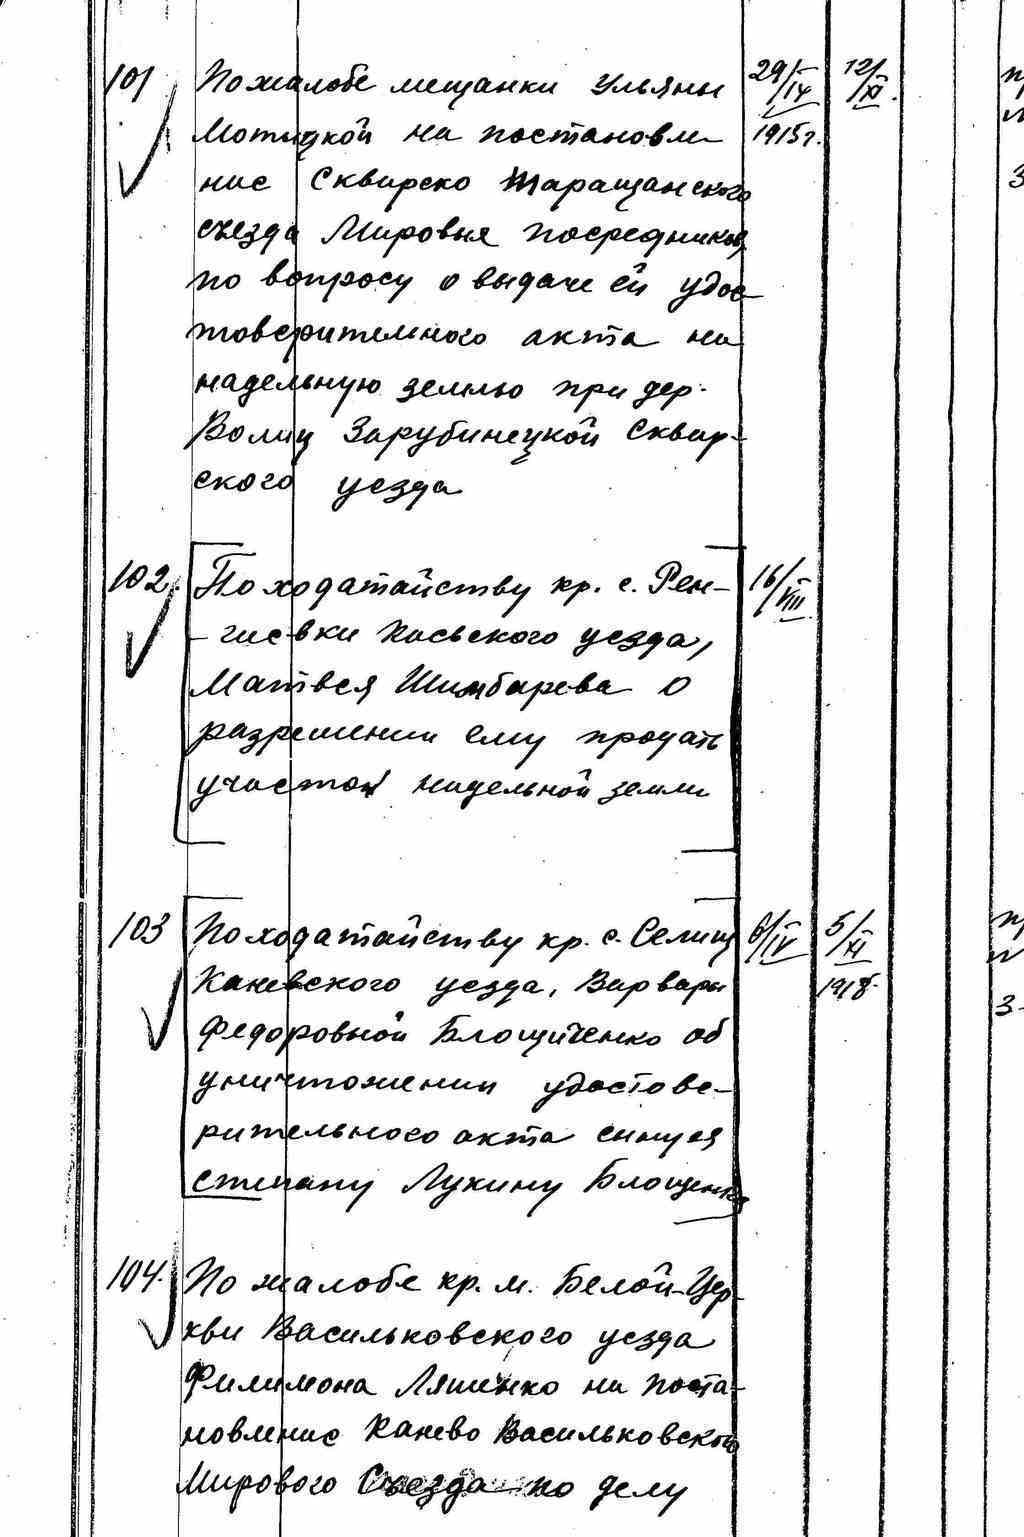 101 По жалобе мещанки Ульяны 29/IX 12/XI.
Мотицкой на постановле- 1915г.
ние Сквирско Таращанского
съезда Мировых посредников
по вопросу о выдаче ей удос-
товерительного акта на
надельную землю при дер.
Волиц Зарубинецкой Сквир-
ского уезда
102. По ходатайству кр. с. Рен- 16/VIII.
- гиевки Киевского уезда,
Матвея о
разрешении ему продать
участок надельной земли
103 По ходатайству кр. с. Селищ 6/IV 5/XI
Каневского уезда, Варвары 1918.
Федоровной Блощиченко об
уничтожении удостове-
рительного акта
степану Лукину Блощенко
104. По жалобе кр. м. Белой-Цер-
кви Васильковского уезда
Филимона Ляшенко на поста-
новление Канево Васильковского
Мирового Съезда по делу